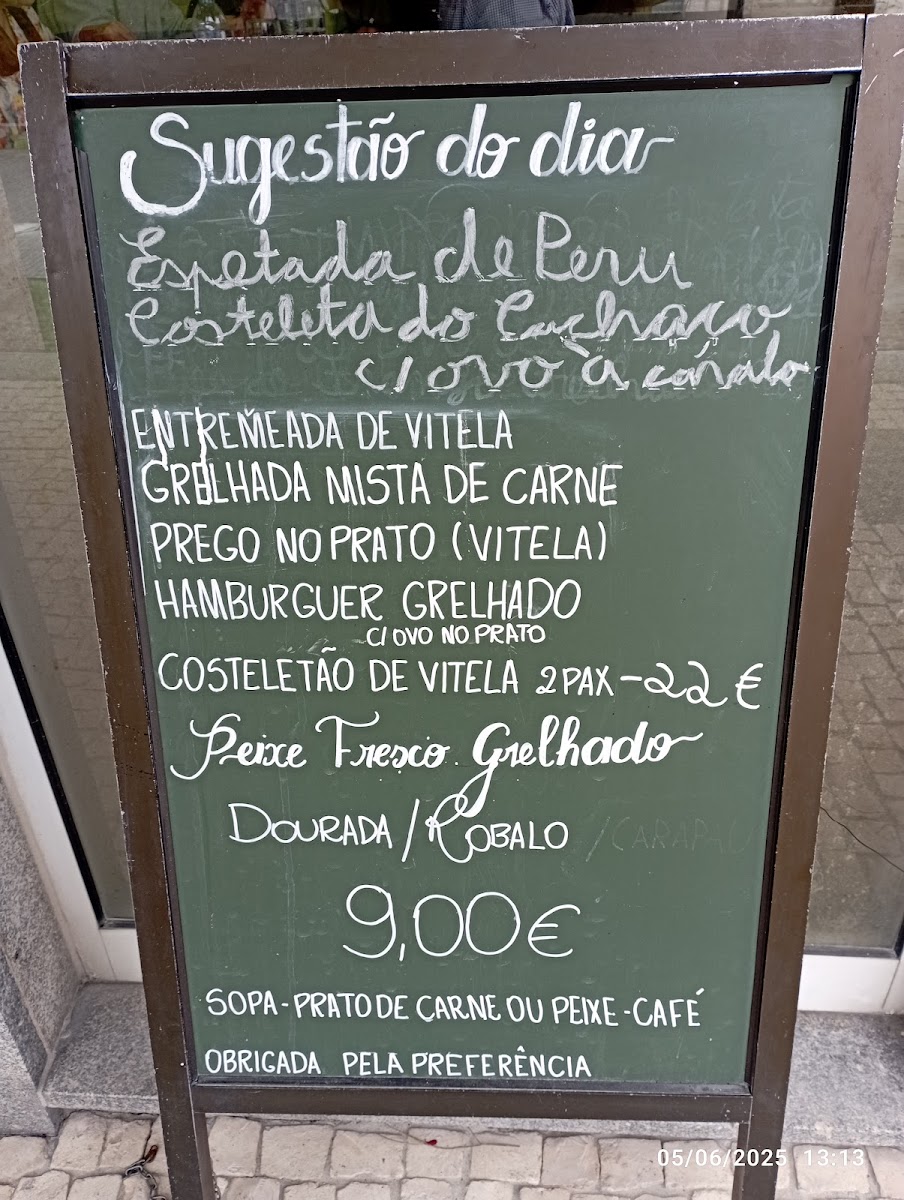 Sugestão do dia
Espetada de Peru
Costeleta do Cachaço
c/ ovo à cavalo
ENTREMEADA DE VITELA
GRELHADA MISTA DE CARNE
PREGO NO PRATO (VITELA)
HAMBURGUER GRELHADO
C/ OVO NO PRATO
COSTELETÃO DE VITELA 2 PAX - 22 €
Peixe Fresco Grelhado
DOURADA / ROBALO / CARAPAU
9,00€
SOPA - PRATO DE CARNE OU PEIXE - CAFÉ
OBRIGADA PELA PREFERÊNCIA
05/06/2025 13:13